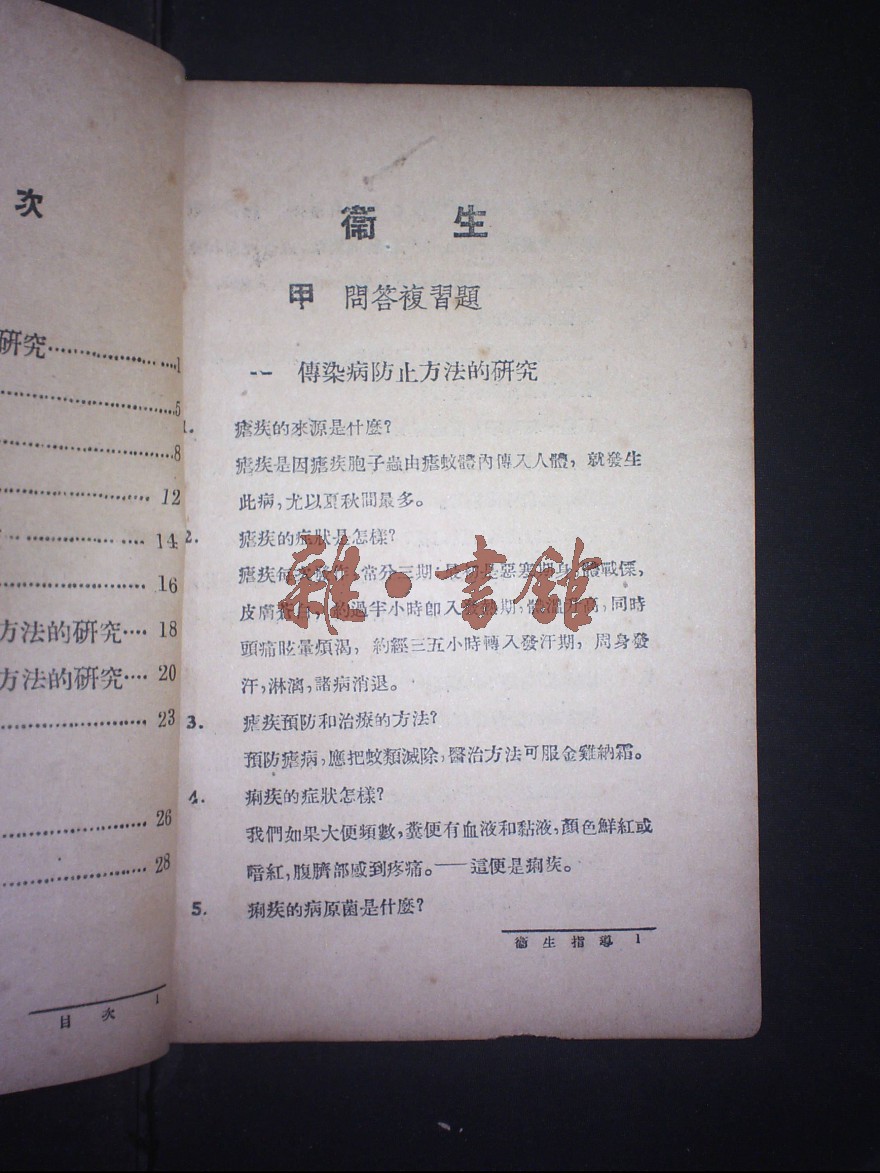 次
研究 1
5
8
12
14
16
方法的研究 18
方法的研究 20
23
26
28
目次 1
衞生
甲 問答複習題
一 傳染病防止方法的研究
1. 瘧疾的來源是什麼?
瘧疾是因瘧疾胞子蟲由瘧蚊體內傳入人體,就發生
此病,尤以夏秋間最多。
2. 瘧疾的症狀是怎樣?
瘧疾每次發作,常分三期,最初是惡寒期,身體戰慄,
皮膚蒼白,約過半小時卽入發熱期,體溫升高,同時
頭痛眩暈煩渴,約經三五小時轉入發汗期,周身發
汗,淋漓,諸病消退。
3. 瘧疾預防和治療的方法?
預防瘧病,應把蚊類滅除,醫治方法可服金雞納霜。
4. 痢疾的症狀怎樣?
我們如果大便頻數,糞便有血液和黏液,顏色鮮紅或
暗紅,腹臍部感到疼痛。——這便是痢疾。
5. 痢疾的病原菌是什麼?
衞生指導 1
雜·書館